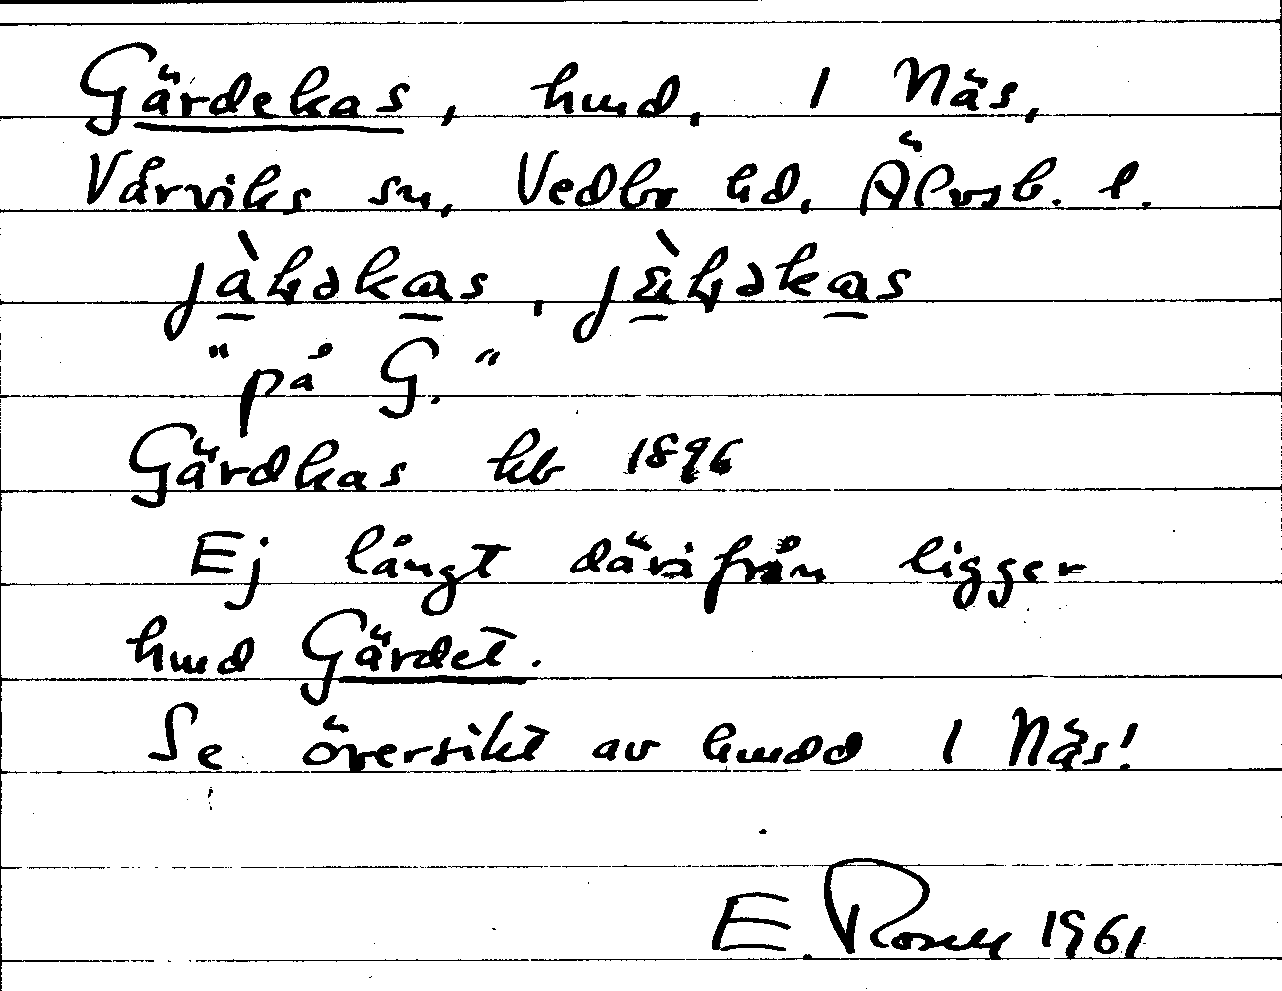 Gärdekas, hmd, 1 Näs,
Vårviks sn, Vedbo hd, Älvsb. l.
"på G."
Gärdkas kb 1896
Ej långt därifrån ligger
hmd Gärdet.
Se översikt av hmdd 1 Näs!
E. Rosell 1961